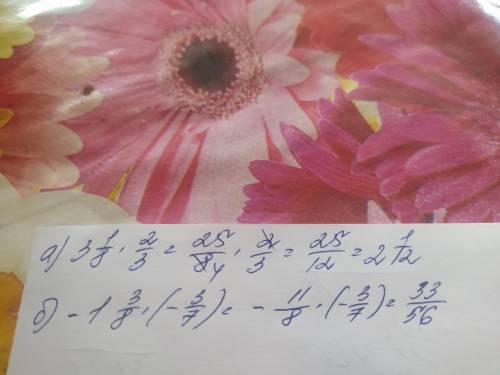 а) 3 1/8 · 2/3 = 25/84 · 2/3 = 25/12 = 2 1/12
б) - 1 3/8 · (- 3/7) = - 11/8 · (- 3/7) = 33/56